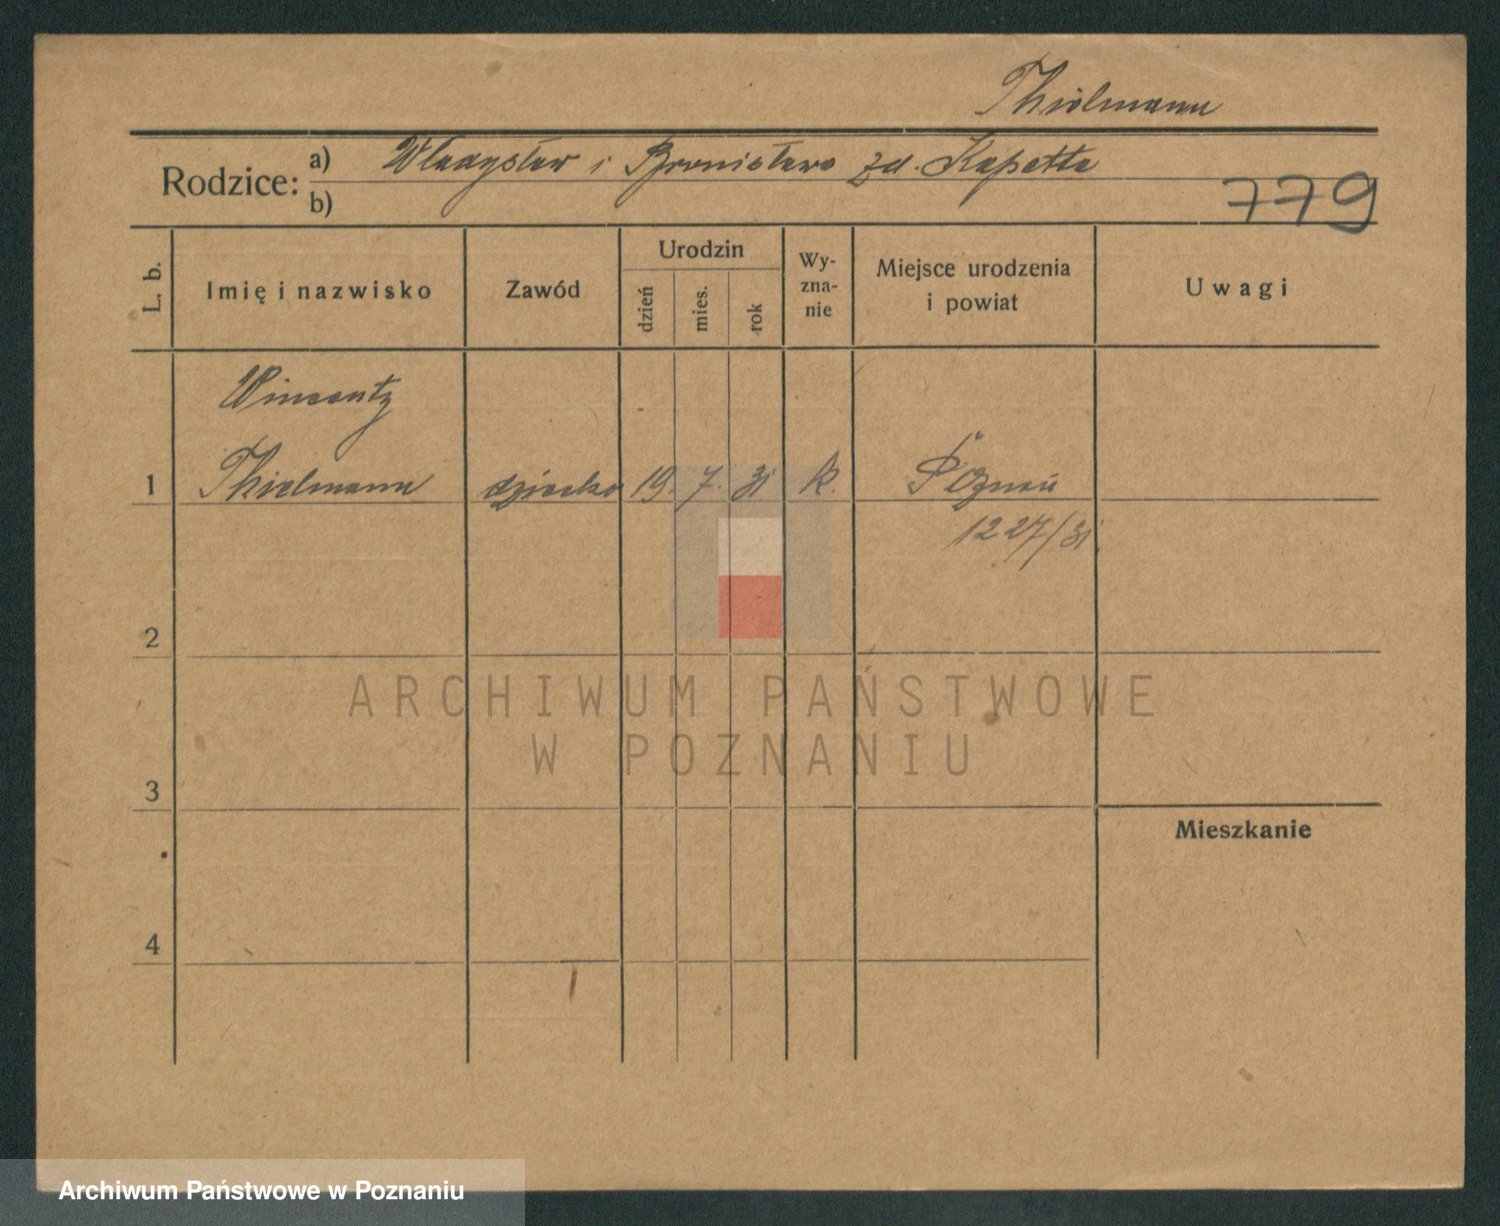 Thielmann
Rodzice: a) Władysław i Bronisława zd. Kapetta
b)
779
L. b.
Imię i nazwisko
Zawód
Urodzin
dzień
mies.
rok
Wy-
zna-
nie
Miejsce urodzenia
i powiat
Uwagi
Wincenty
1 Thielmann dziecko 19. 7. 31 k. Poznań
1227/31.
2
ARCHIWUM PAŃSTWOWE
W POZNANIU
3
Mieszkanie
4
Archiwum Państwowe w Poznaniu